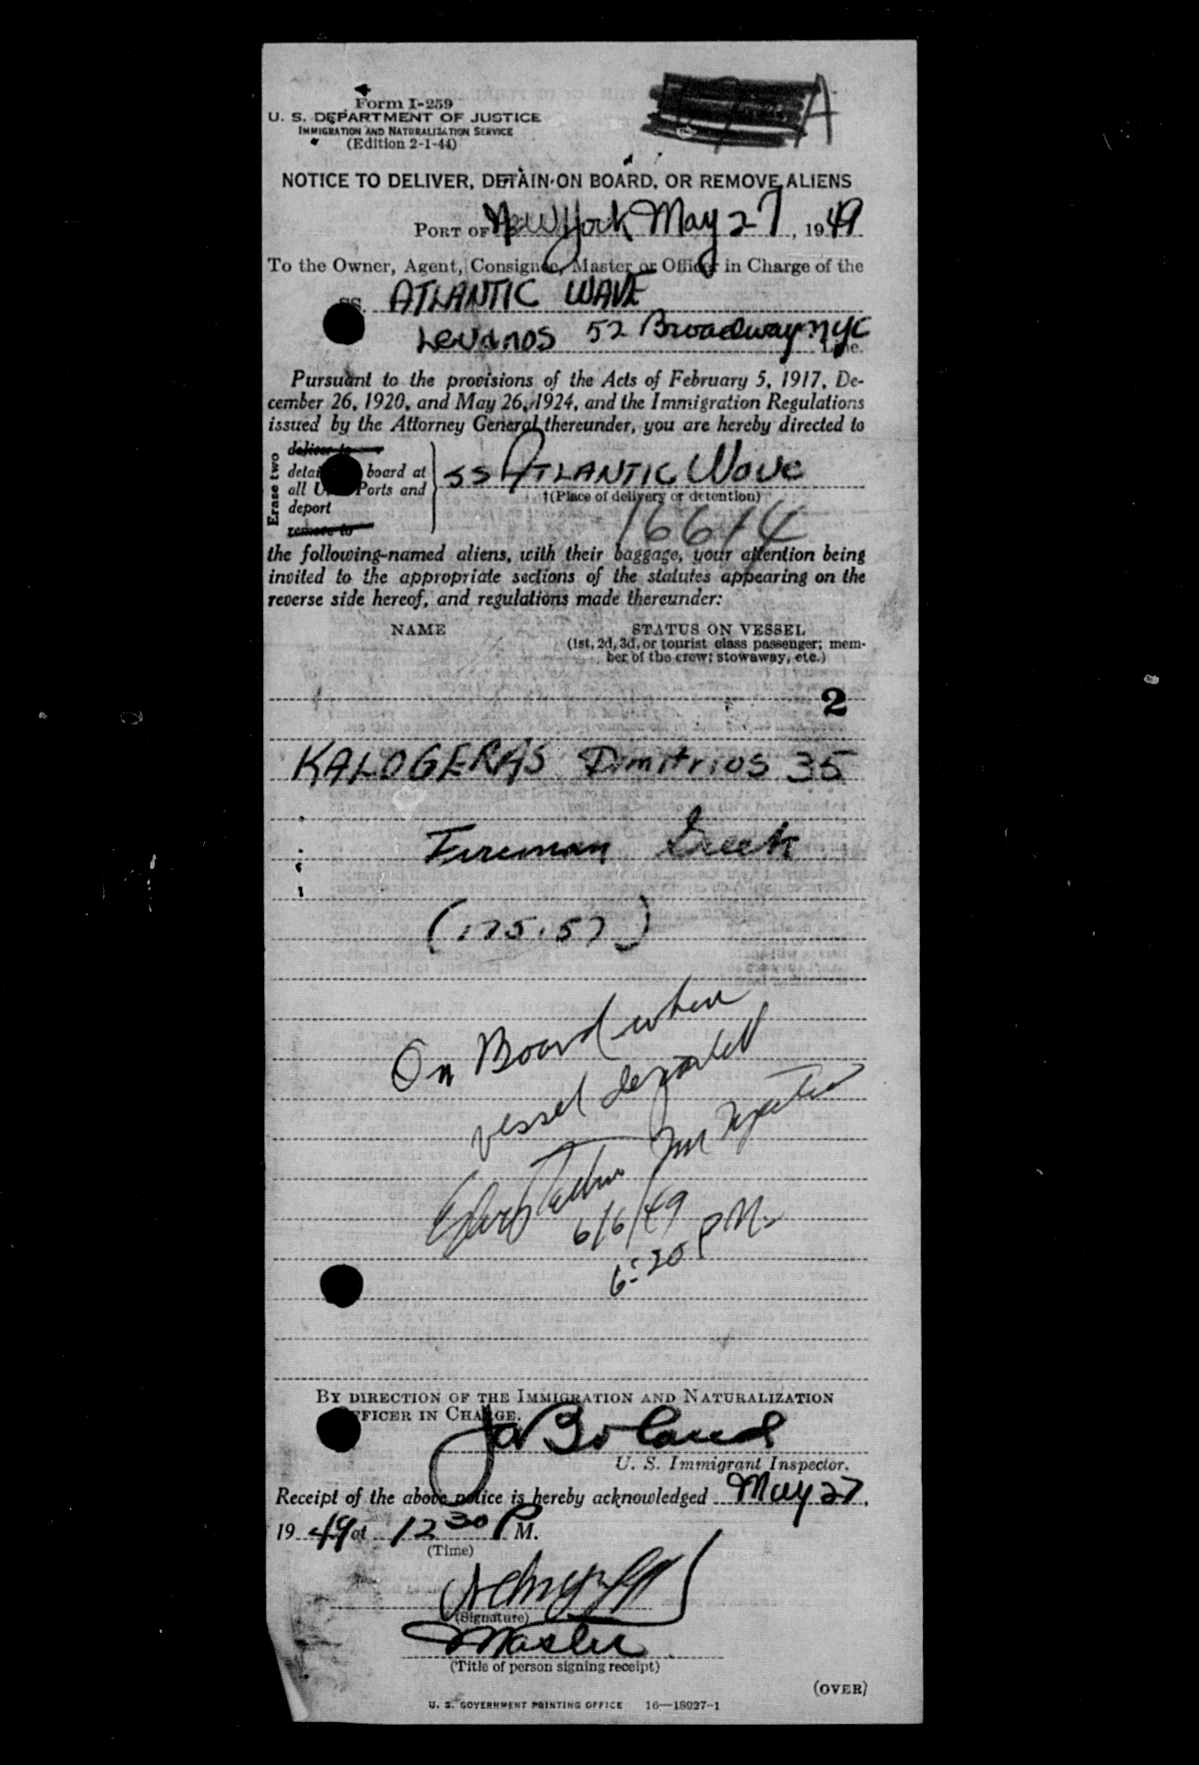 Form I-259
U. S. DEPARTMENT OF JUSTICE
IMMIGRATION AND NATURALIZATION SERVICE
(Edition 2-1-44)
NOTICE TO DELIVER, DETAIN ON BOARD, OR REMOVE ALIENS
PORT OF New York May 27, 1949
To the Owner, Agent, Consignee, Master or Officer in Charge of the
SS. ATLANTIC WAVE
Levanos 52 Broadway NYC Line.
Pursuant to the provisions of the Acts of February 5, 1917, De-
cember 26, 1920, and May 26, 1924, and the Immigration Regulations
issued by the Attorney General thereunder, you are hereby directed to
Erase two
deliver to
detain board at
all U. Ports and
deport
remove to
SS ATLANTIC Wave
†(Place of delivery or detention)
16614
the following-named aliens, with their baggage, your attention being
invited to the appropriate sections of the statutes appearing on the
reverse side hereof, and regulations made thereunder:
NAME STATUS ON VESSEL
(1st, 2d, 3d, or tourist class passenger; mem-
ber of the crew; stowaway, etc.)
2
KALOGERAS Dimitrios 35
Fireman Greek
(175.57)
On Board when
vessel departed
6/6/49
6:20 PM.
BY DIRECTION OF THE IMMIGRATION AND NATURALIZATION
OFFICER IN CHARGE.
Boland
U. S. Immigrant Inspector.
Receipt of the above notice is hereby acknowledged May 27,
1949 at 12 30 P M.
(Time)
(Signature)
Master
(Title of person signing receipt)
(OVER)
U. S. GOVERNMENT PRINTING OFFICE 16—18027-1